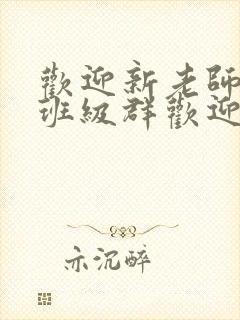 歡迎新老師
班級群歡迎
示沉醉